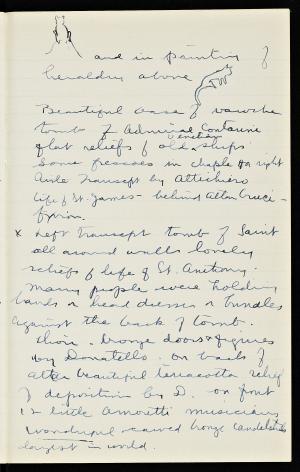 and in painting of
heraldry above
Beautiful base of
tomb of Admiral Contarini
flat reliefs of old Venetian ships
Some frescoes in chaple on right
Aisle Transept by Altichiero
life of St. James - behind altar Cruci-
fixion.
x Left Transept tomb of Saint
all around walls lovely
reliefs of life of St. Anthony.
Many people were holding
hands or head dresses or bundles
against the back of tomb.
Choir - bronze doors & figures
by Donatello. On back of
altar beautiful terracotta relief
of deposition by D. on front
12 little Amoretti musicians
Wonderful carved bronze candelstick
largest in world.